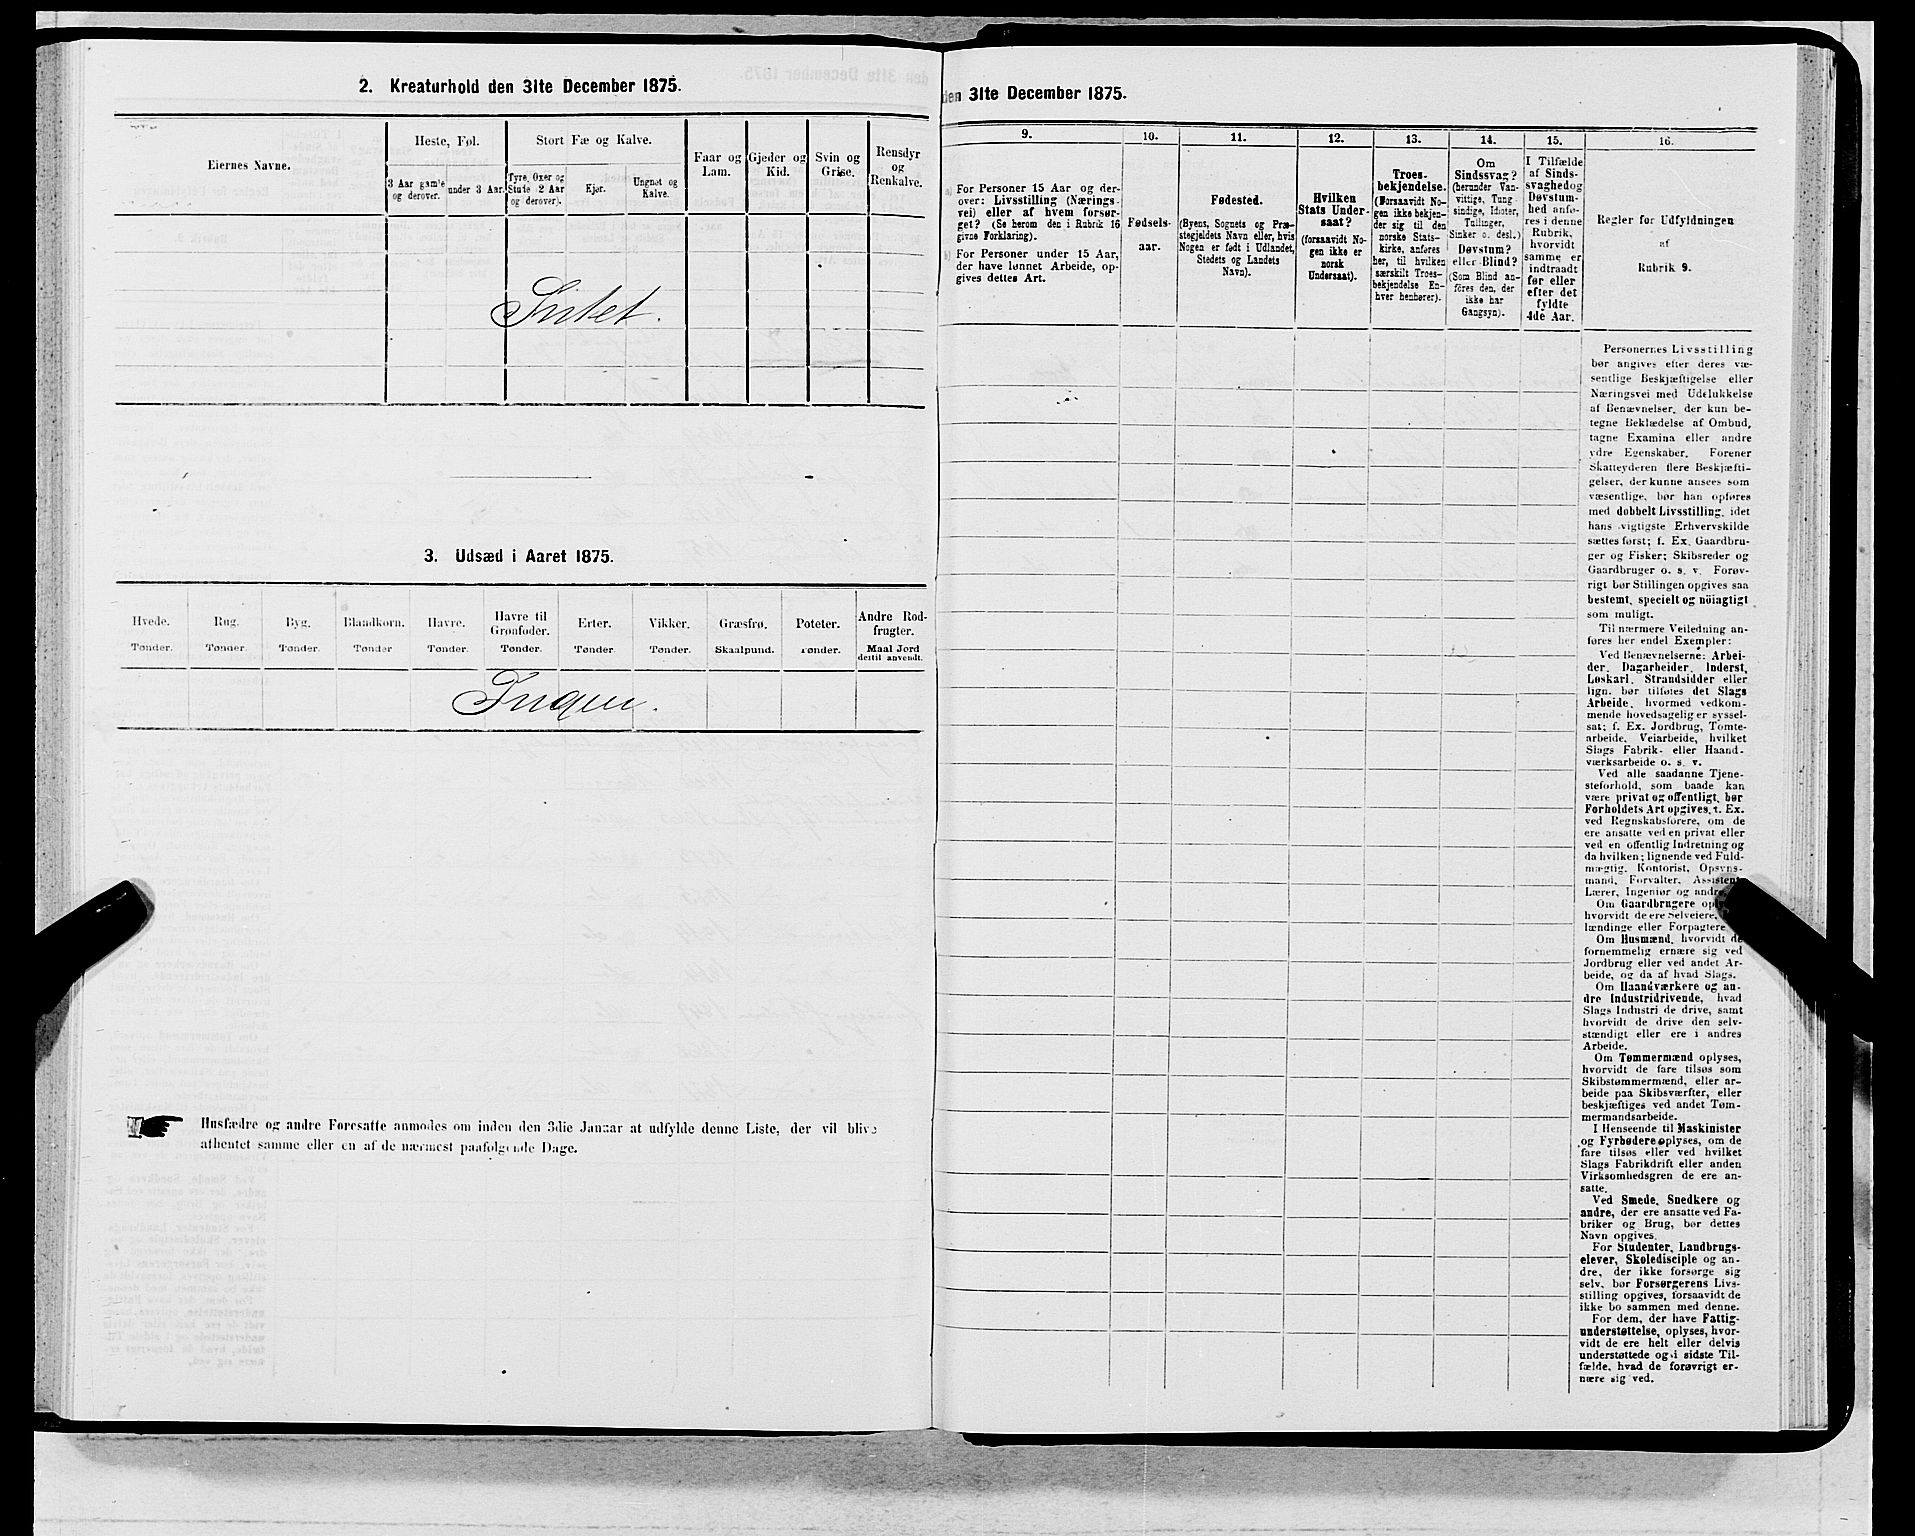 2. Kreaturhold den 31te December 1875.
Eiernes Navne.
Heste, Føl.
3 Aar gamle og derover.
under 3 Aar.
Stort Fæ og Kalve.
Tyre, Oxer og
Stude (2 Aar
og derover).
Kjør.
Ungnøt og
Kalve.
Faar og
Lam.
Gjeder og
Kid.
Svin og
Grise.
Rensdyr
og
Renkalve.
Intet.
3. Udsæd i Aaret 1875.
Hvede. Rug. Byg. Blandkorn. Havre. Havre til Grønfoder. Erter. Vikker. Græsfrø. Poteter. Andre Rodfrugter.
Tønder. Tønder. Tønder. Tønder Tønder. Tønder. Tønder. Tønder. Skaalpund. Tønder. Maal Jord dertil anvendt.
Ingen.
Husfædre og andre Foresatte anmodes om inden den 3die Januar at udfylde denne Liste, der vil blive
afhentet samme eller en af de nærmest paafølgende Dage.
den 31te December 1875.
9.
a) For Personer 15 Aar og der-
over: Livsstilling (Nærings-
vei) eller af hvem forsør-
get? (Se herom den i Rubrik 16
givne Forklaring).
b) For Personer under 15 Aar,
der have lønnet Arbeide, op-
gives dettes Art.
10.
Fødsels-
aar.
11.
Fødested.
(Byens, Sognets og Præ-
stegjeldets Navn eller, hvis
Nogen er født i Udlandet,
Stedets og Landets
Navn).
12.
Hvilken
Stats Under-
saat?
(forsaavidt No-
gen ikke er
norsk
Undersaat).
13.
Troes-
bekjendelse.
(Forsaavidt No-
gen ikke bekjen-
der sig til den
norske Stats-
kirke, anføres
her, til hvilken
særskilt Troes-
bekjendelse En-
hver henhører).
14.
Om
Sindssvag?
(herunder Van-
vittige, Tung-
sindige, Idioter,
Tullinger,
Sinker o. desl.)
Døvstum?
eller Blind?
(Som Blind an-
føres den, der
ikke har
Gangsyn).
15.
I Tilfælde
af Sinds-
svaghed og
Døvstum-
hed anfø-
res i denne
Rubrik,
hvorvidt
samme er
indtraadt
før eller
efter det
fyldte
4de Aar.
16.
Regler for Udfyldningen
af
Rubrik 9.
Personernes Livsstilling
bør angives efter deres væ-
sentlige Beskjæftigelse eller
Næringsvei med Udelukkelse
af Benævnelser, der kun be-
tegne Beklædelse af Ombud,
tagne Examina eller andre
ydre Egenskaber. Forener
Skatteyderen flere Beskjæfti-
gelser, der kunne ansees som
væsentlige, bør han opføres
med dobbelt Livsstilling, idet
hans vigtigste Erhvervskilde
sættes først; f. Ex. Gaardbru-
ger og Fisker; Skibsreder og
Gaardbruger o. s. v. Forøv-
rigt bør Stillingen opgives saa
bestemt, specielt og nöiagtigt
som muligt.
Til nærmere Veiledning an-
føres her endel Exempler:
Ved Benævnelserne: Arbei-
der, Dagarbeider, Inderst,
Løskarl, Strandsidder eller
lign. bør tilføies det Slags
Arbeide, hvormed vedkom-
mende hovedsagelig er syssel-
sat; f. Ex. Jordbrug, Tomte-
arbeide, Veiarbeide, hvilket
Slags Fabrik- eller Haand-
værksarbeide o. s. v.
Ved alle saadanne Tjene-
steforhold, som baade kan
være privat og offentligt, bør
Forholdets Art opgives, t. Ex.
ved Regnskabsførere, om de
ere ansatte ved en privat eller
ved en offentlig Indretning og
da hvilken; lignende ved Fuld-
mægtig, Kontorist, Opsyns-
mand, Forvalter, Assistent,
Lærer, Ingeniør og andre.
Om Gaardbrugere
hvorvidt de ere Selveiere,
lændinge eller Forpagtere
Om Husmænd, hvorvidt de
fornemmelig ernære sig ved
Jordbrug eller ved andet Ar-
beide, og da af hvad Slags.
Om Haandværkere og an-
dre Industridrivende, hvad
Slags Industri de drive, samt
hvorvidt de drive den selv-
stændigt eller ere i andres
Arbeide.
Om Tømmermænd oplyses,
hvorvidt de fare tilsøs som
Skibstømmermænd, eller ar-
beide paa Skibsværfter, eller
beskjæftiges ved andet Tøm-
mermandsarbeide.
I Henseende til Maskinister
og Fyrbødere oplyses, om de
fare tilsøs eller ved hvilket
Slags Fabrikdrift eller anden
Virksomhedsgren de ere an-
satte.
Ved Smede, Snedkere og
andre, der ere ansatte ved Fa-
briker og Brug, bør dettes
Navn opgives.
For Studenter, Landbrugs-
elever, Skoledisciple og an-
dre, der ikke forsørge sig
selv, bør Forsørgerens Livs-
stilling opgives, forsaavidt de
ikke bo sammen med denne.
For dem, der have Fattig-
understøttelse, oplyses, hvor-
vidt de ere helt eller delvis
understøttede og i sidste Til-
fælde, hvad de forøvrigt er-
nære sig ved.